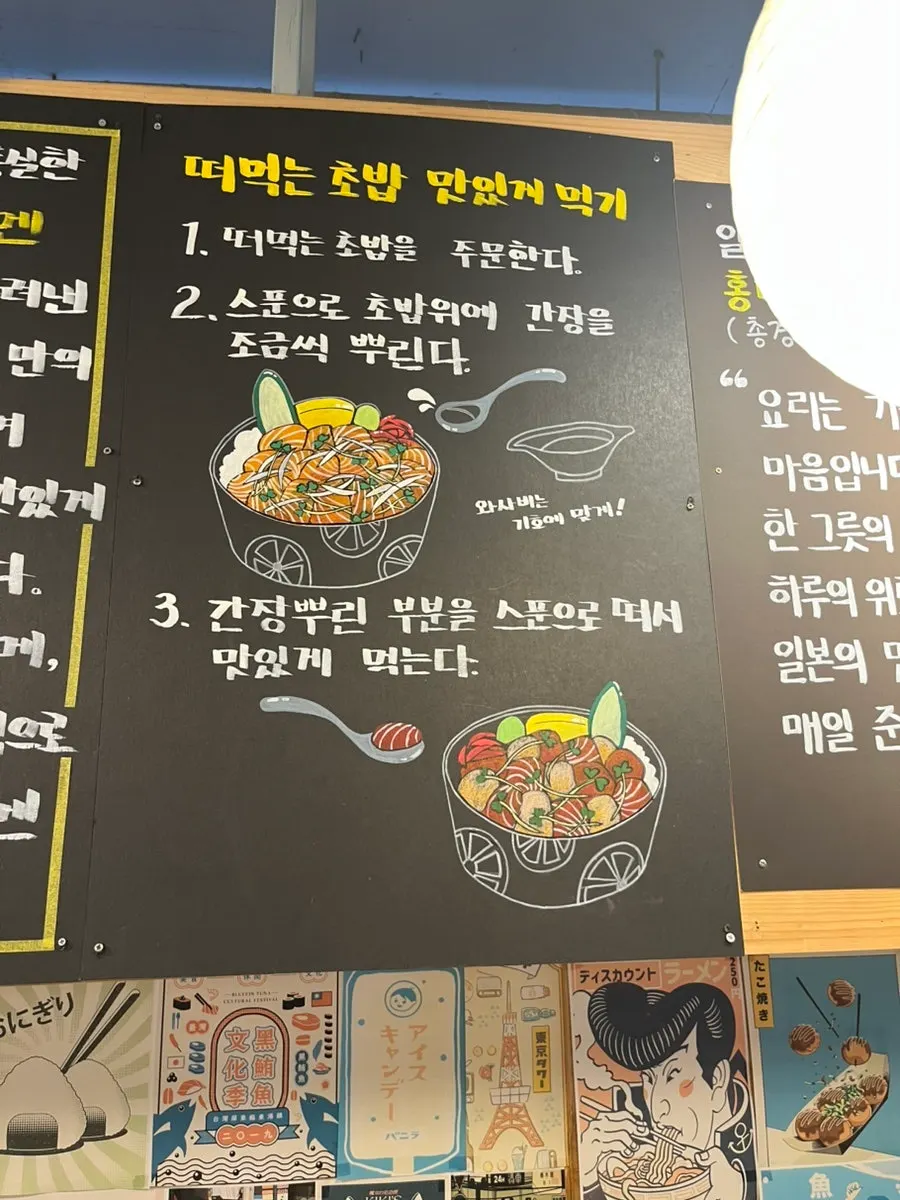 떠먹는 초밥 맛있게 먹기
1. 떠먹는 초밥을 주문한다.
2. 스푼으로 초밥위에 간장을
조금씩 뿌린다.
와사비는
기호에 맞게!
3. 간장뿌린 부분을 스푼으로 떠서
맛있게 먹는다.
만의
맛있게
다.
으로
“
요리는
마음입니다
한 그릇의
하루의
일본의
매일
おにぎり
BLUEFIN TUNA
CULTURAL FESTIVAL
黑鮪魚
文化季
二〇一九
アイス
キャンデー
バニラ
東京タワー
ディスカウント ラーメン
250
たこ焼き
魚
KIKI'S